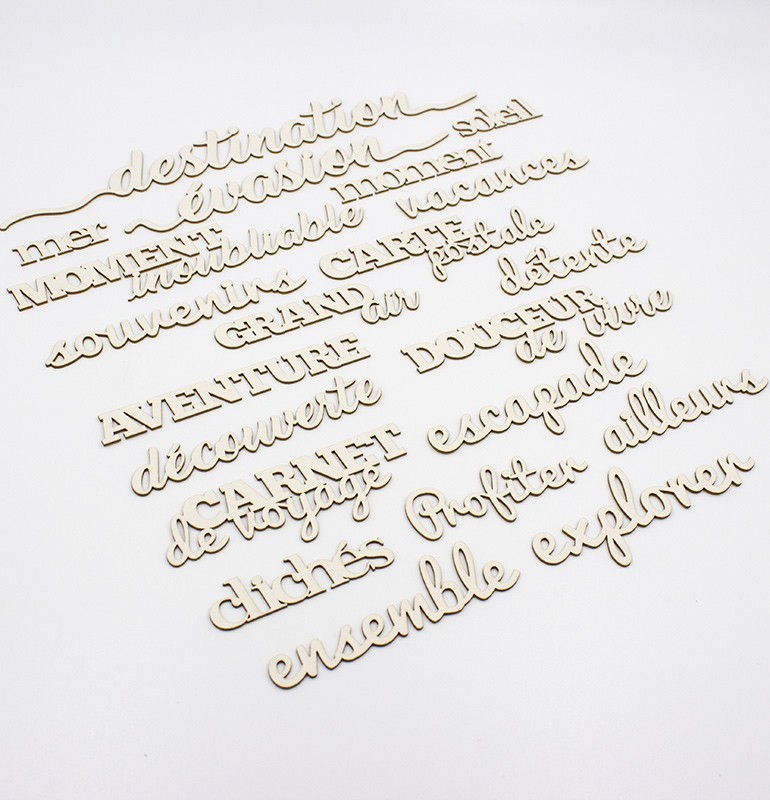 destination
soleil
évasion
moment
vacances
mer
MOMENT
inoubliable
CARTE
postale
détente
souvenirs
GRAND
air
DOUCEUR
de vivre
AVENTURE
escapade
découverte
ailleurs
CARNET
de voyage
Profiter
explorer
clichés
ensemble